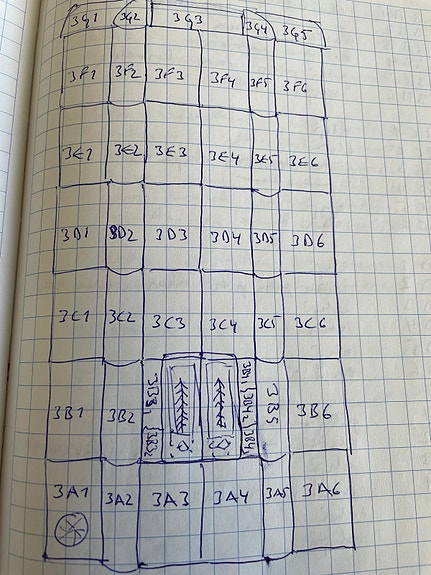 3G1 3G2 3G3 3G4 3G5
3F1 3F2 3F3 3F4 3F5 3F6
3E1 3E2 3E3 3E4 3E5 3E6
3D1 3D2 3D3 3D4 3D5 3D6
3C1 3C2 3C3 3C4 3C5 3C6
3B1 3B2 3B3₁ {3B3₂ 3B4₁ {3B4₂ {3B4₃ 3B5 3B6
3A1 3A2 3A3 3A4 3A5 3A6